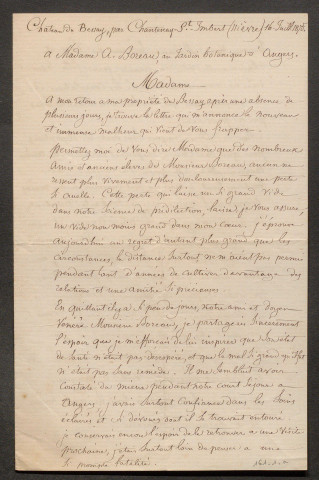 Château du Bessay, par Chantenay-St Imbert (Nièvre) 16 Juillet 1875.
à Madame A. Boreau, au Jardin botanique = Angers.
Madame
A mon retour à ma propriété du Bessay après une absence de
plusieurs jours, je trouve la lettre qui m'annonce le nouveau
et immense malheur qui vient de vous frapper.
permettez moi de vous dire Madame que des nombreux
amis et anciens élèves de Monsieur Boreau, aucun ne
ressent plus vivement et plus douloureusement une perte
si cruelle. Cette perte qui laisse un si grand vide
dans notre science de prédilection, laisse, je vous assure,
un vide non moins grand dans mon cœur. j'éprouve
aujourd'hui un regret d'autant plus grand que les
circonstances, la distance surtout ne m'aient pas permis
pendant tant d'années de cultiver davantage des
relations et une amitié si précieuses.
En quittant il y a si peu de jours, notre ami et doyen
vénéré Monsieur Boreau, je partageais sincèrement
l'espoir que je m'efforçais de lui inspirer que son état
de santé n'était pas désespéré, et que le mal si grand qu'il fut
n'était pas sans remèdes. Il me semblait avoir
constaté du mieux pendant notre court séjour à
Angers; j'avais surtout confiance dans les soins
éclairés et si dévoués dont il se trouvait entouré
je conservais encore l'espoir de le retrouver à une visite
prochaine, j'étais surtout loin de penser à une
si prompte fatalité.